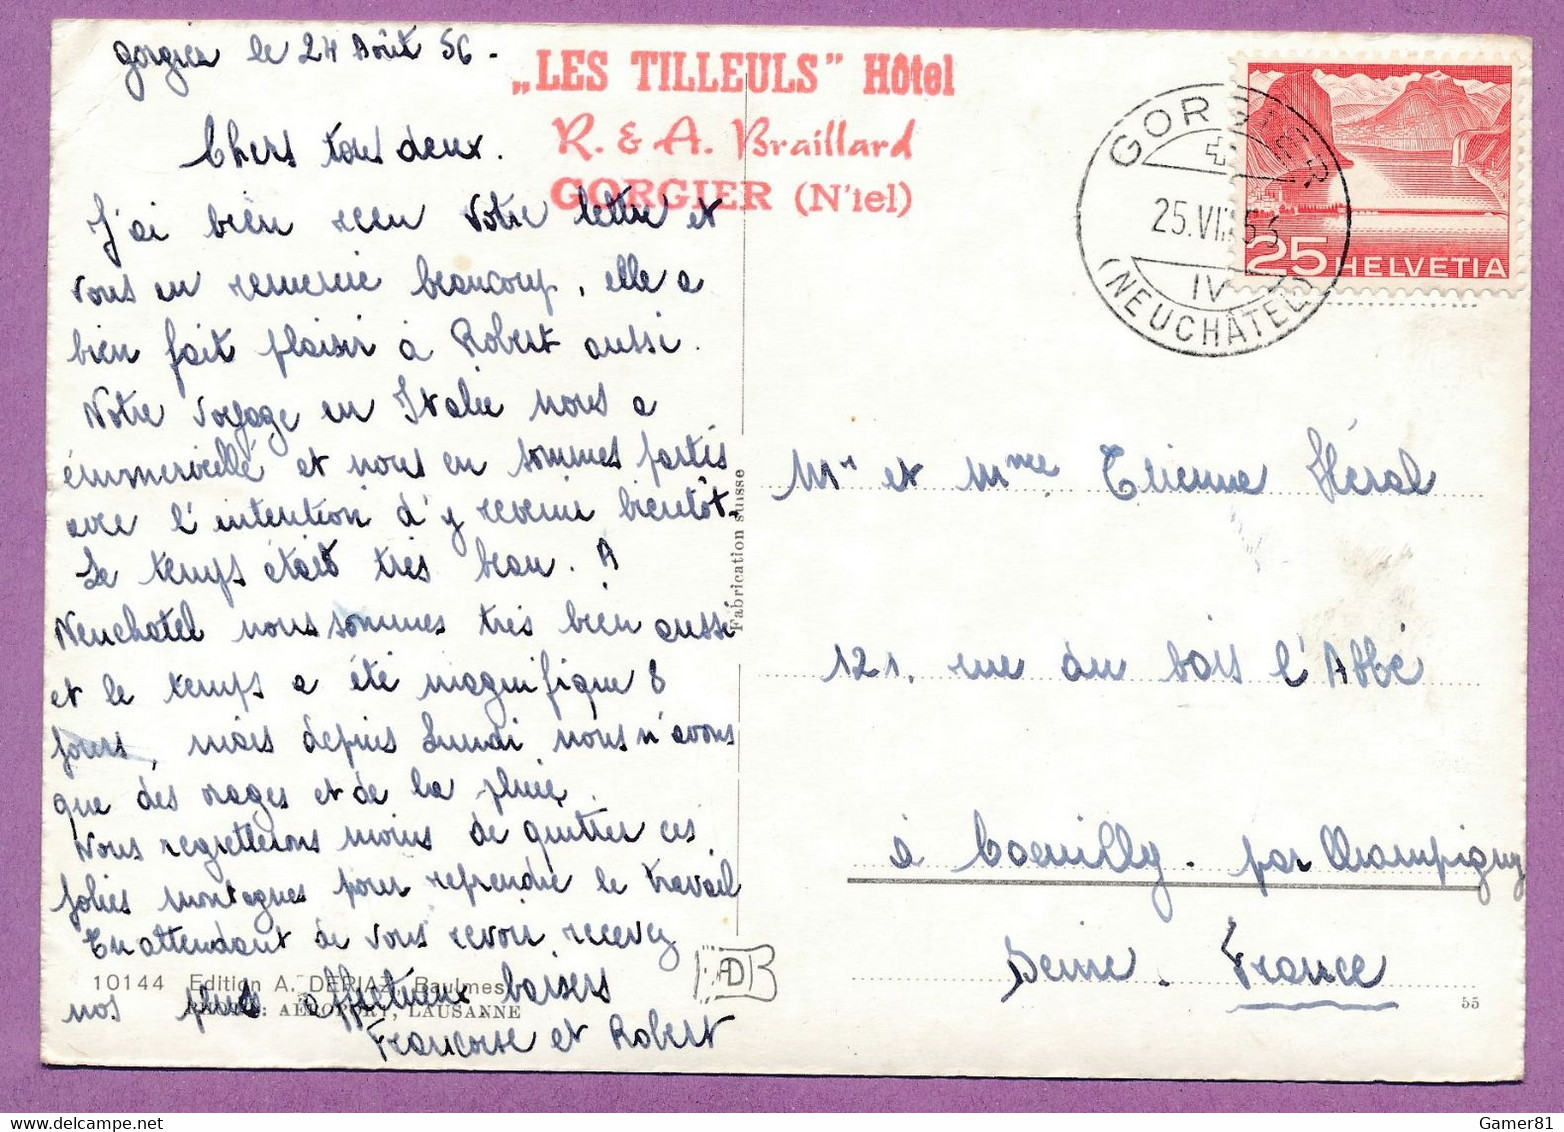 Gorgier le 24 Août 56.
Chers tous deux.
J'ai bien reçu votre lettre et
vous en remercie beaucoup, elle a
bien fait plaisir à Robert aussi.
Notre voyage en Italie nous a
émmerveillé et nous en sommes partis
avec l'intention d'y revenir bientôt.
Le temps était très beau. A
Neuchatel nous sommes très bien aussi
et le temps a été magnifique 8
jours, mais depuis Lundi nous n'avons
que des orages et de la pluie.
Nous regretterons moins de quitter ces
jolies montagnes pour reprendre le travail
En attendant de vous revoir recevez
nos plus affectueux baisers
Françoise et Robert
10144 Edition A. DERIAZ, Baulmes
PHOTO: AÉROPORT, LAUSANNE
„LES TILLEULS" Hôtel
R. & A. Braillard
GORGIER (N'tel)
Fabrication suisse
AD
GORGIER
25.VIII.56
IV
(NEUCHÂTEL)
25 HELVETIA
Mr et Mme Etienne Héral
121. rue du bois l'Abbé
à Coeuilly. par Champigny
Seine. France
55
Gamer81